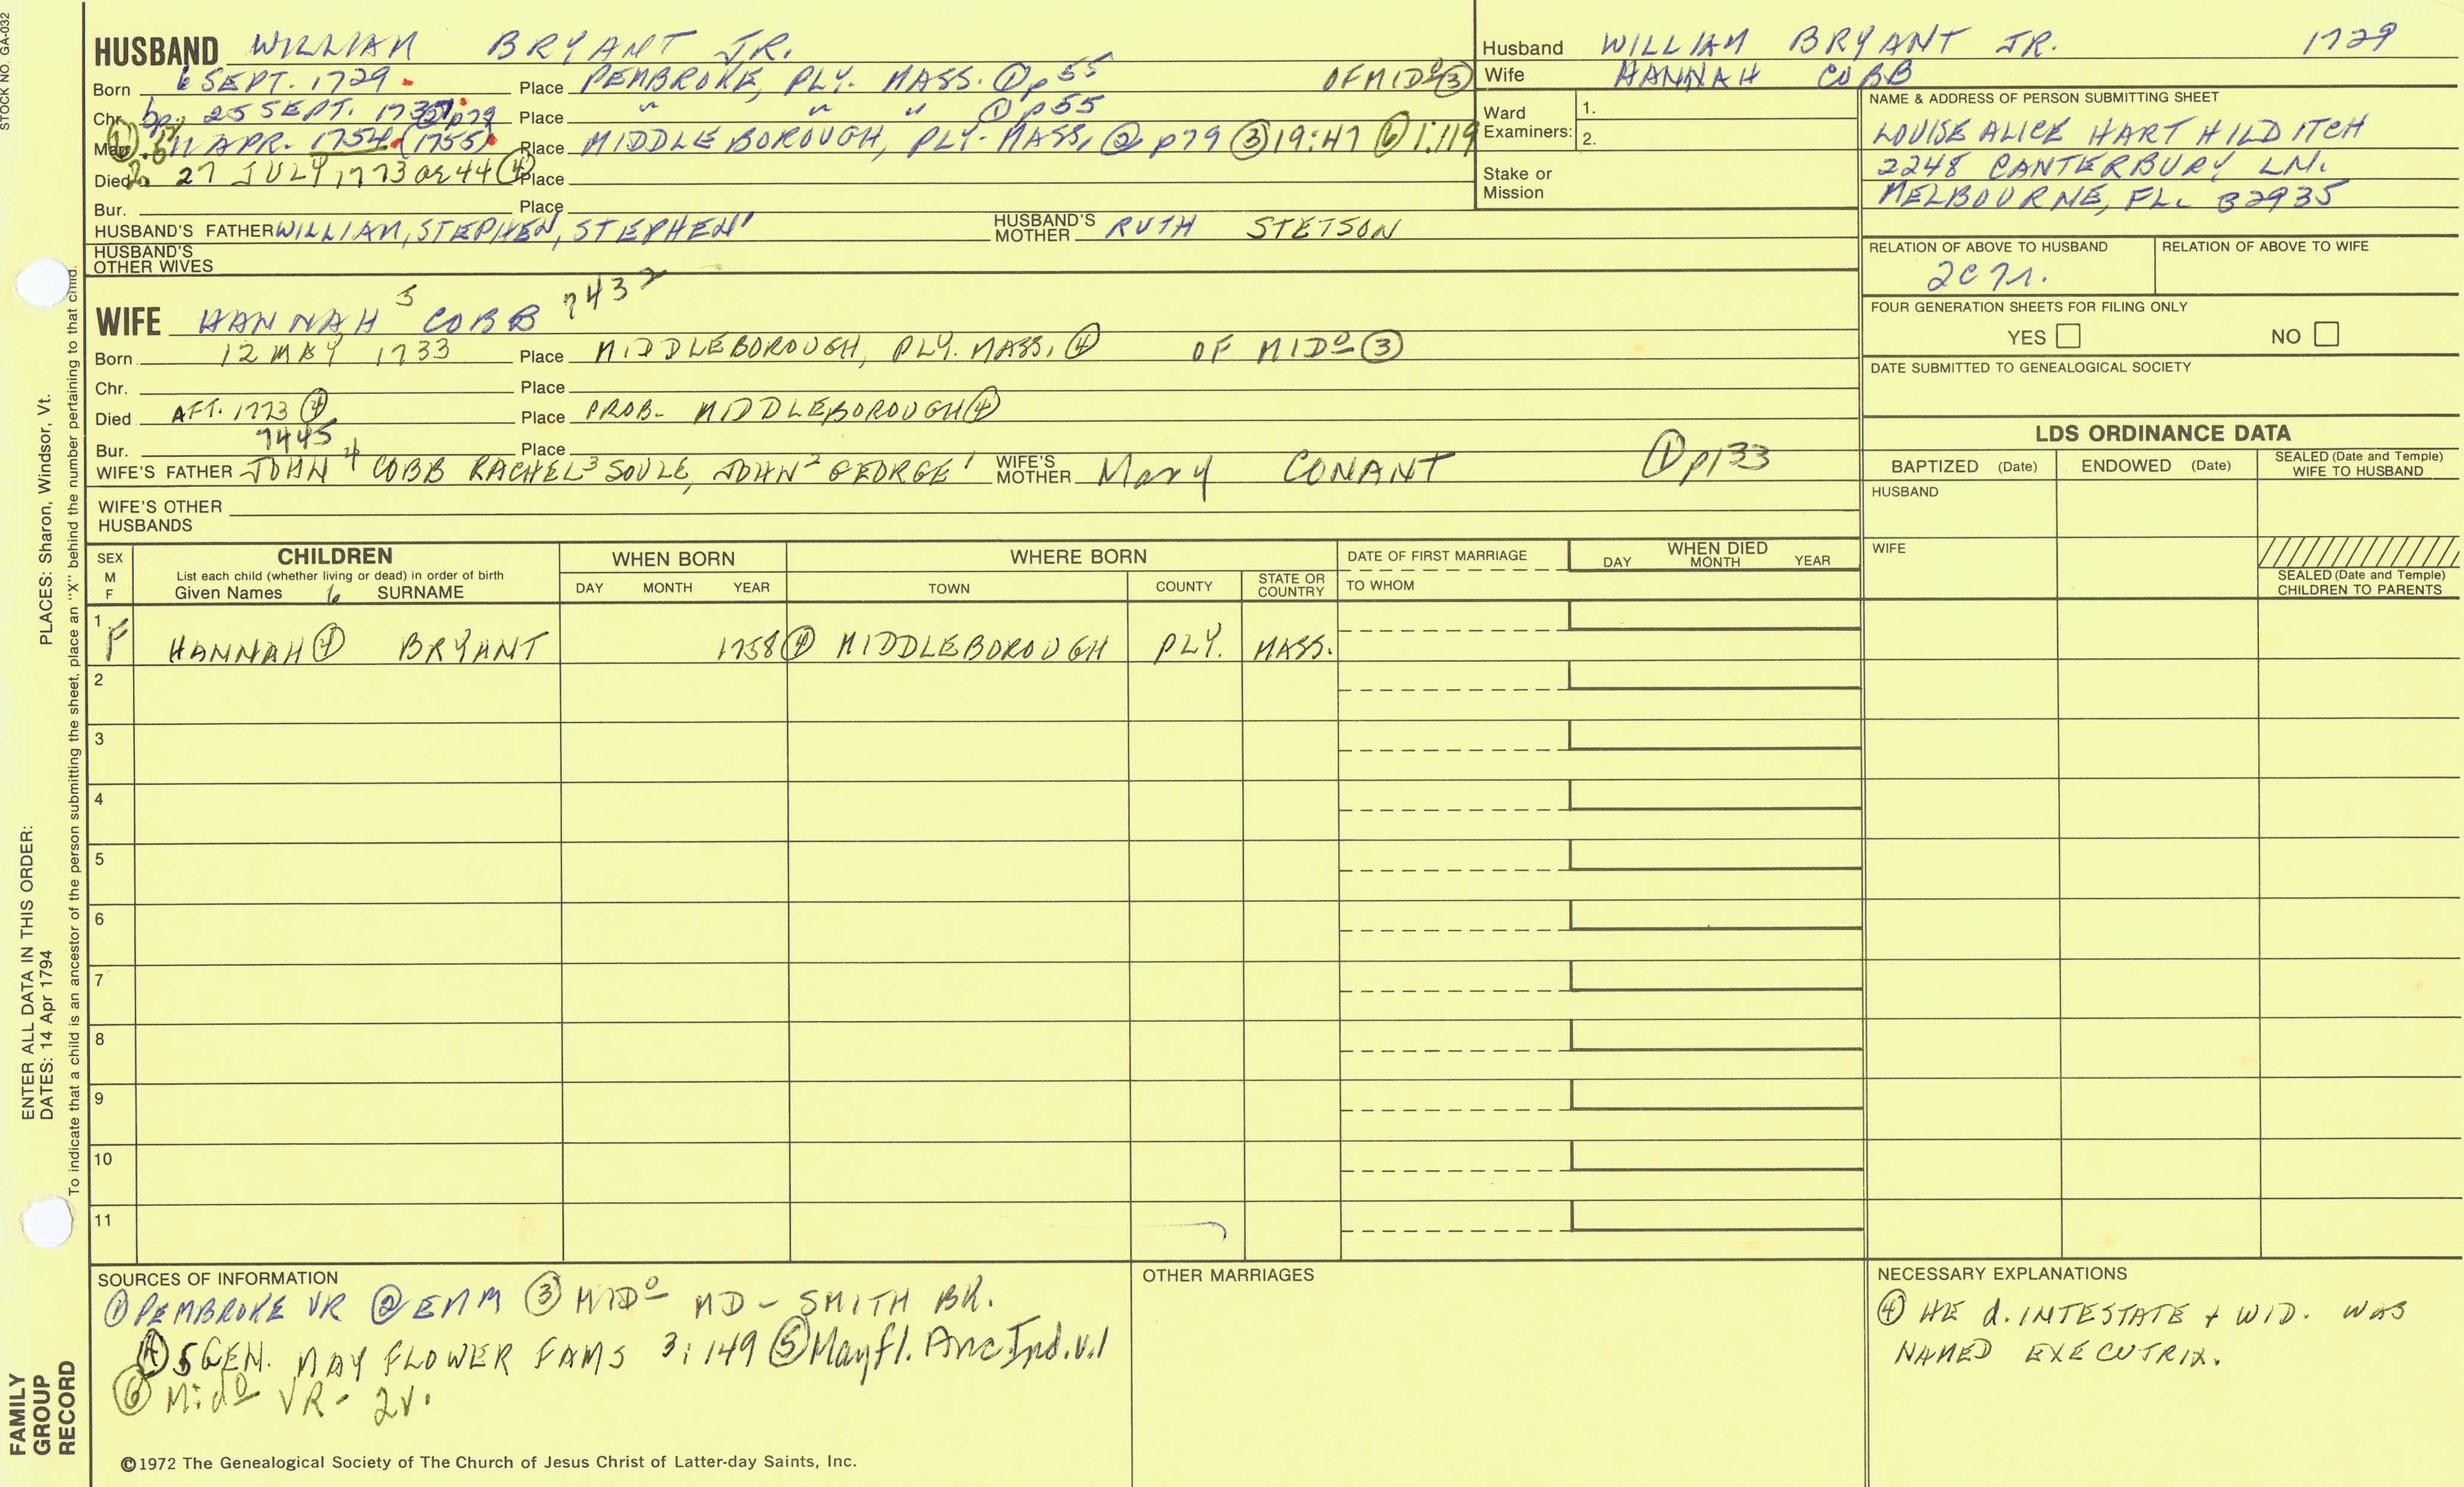 STOCK NO. GA-032
HUSBAND WILLIAM BRYANT JR.
Born 6 SEPT. 1729 Place PEMBROKE, PLY. MASS. ① p 55 OF MIDº ③
Chr. bp. 25 SEPT. Place " " " ① p 55
Marr. 11 APR. 1754 (1755) Place MIDDLEBOROUGH, PLY. MASS, ② p79 ③ 19:47 ⑥ 1:119
Died 27 JULY 1773 Place
Bur. Place
HUSBAND'S FATHER WILLIAM, STEPHEN, STEPHEN¹ HUSBAND'S MOTHER RUTH STETSON
HUSBAND'S OTHER WIVES
Husband WILLIAM BRYANT JR. 1729
Wife HANNAH COBB
Ward Examiners: 1.
2.
Stake or Mission
NAME & ADDRESS OF PERSON SUBMITTING SHEET
LOUISE ALICE HART HILDITCH
2248 CANTERBURY LN.
MELBOURNE, FL. 32935
RELATION OF ABOVE TO HUSBAND RELATION OF ABOVE TO WIFE
FOUR GENERATION SHEETS FOR FILING ONLY
YES NO
DATE SUBMITTED TO GENEALOGICAL SOCIETY
WIFE HANNAH⁵ COBB
Born 12 MAY 1733 Place MIDDLEBOROUGH, PLY. MASS, ④ OF MIDº ③
Chr. Place
Died AFT. 1773 ④ Place PROB. MIDDLEBOROUGH ④
Bur. 7445 Place
WIFE'S FATHER JOHN⁴ COBB RACHEL³ SOULE, JOHN² GEORGE¹ WIFE'S MOTHER Mary CONANT ① p133
WIFE'S OTHER HUSBANDS
LDS ORDINANCE DATA
BAPTIZED (Date) ENDOWED (Date) SEALED (Date and Temple) WIFE TO HUSBAND
HUSBAND
WIFE
SEALED (Date and Temple) CHILDREN TO PARENTS
SEX M F CHILDREN List each child (whether living or dead) in order of birth Given Names 6 SURNAME
WHEN BORN DAY MONTH YEAR
WHERE BORN TOWN COUNTY STATE OR COUNTRY
DATE OF FIRST MARRIAGE TO WHOM
WHEN DIED DAY MONTH YEAR
1 F HANNAH ④ BRYANT 1758 ④ MIDDLEBOROUGH PLY. MASS.
2
3
4
5
6
7
8
9
10
11
SOURCES OF INFORMATION
① PEMBROKE VR ② EMM ③ MIDº MD - SMITH BK.
④ 5 GEN. MAYFLOWER FAMS 3:149 ⑤ Mayfl. Anc. Ind. v.1
⑥ Midº VR - 2v.
©1972 The Genealogical Society of The Church of Jesus Christ of Latter-day Saints, Inc.
OTHER MARRIAGES
NECESSARY EXPLANATIONS
④ HE d. INTESTATE + WID. WAS
NAMED EXECUTRIX.
ENTER ALL DATA IN THIS ORDER:
DATES: 14 Apr 1794 PLACES: Sharon, Windsor, Vt.
To indicate that a child is an ancestor of the person submitting the sheet, place an "X" behind the number pertaining to that child.
FAMILY
GROUP
RECORD